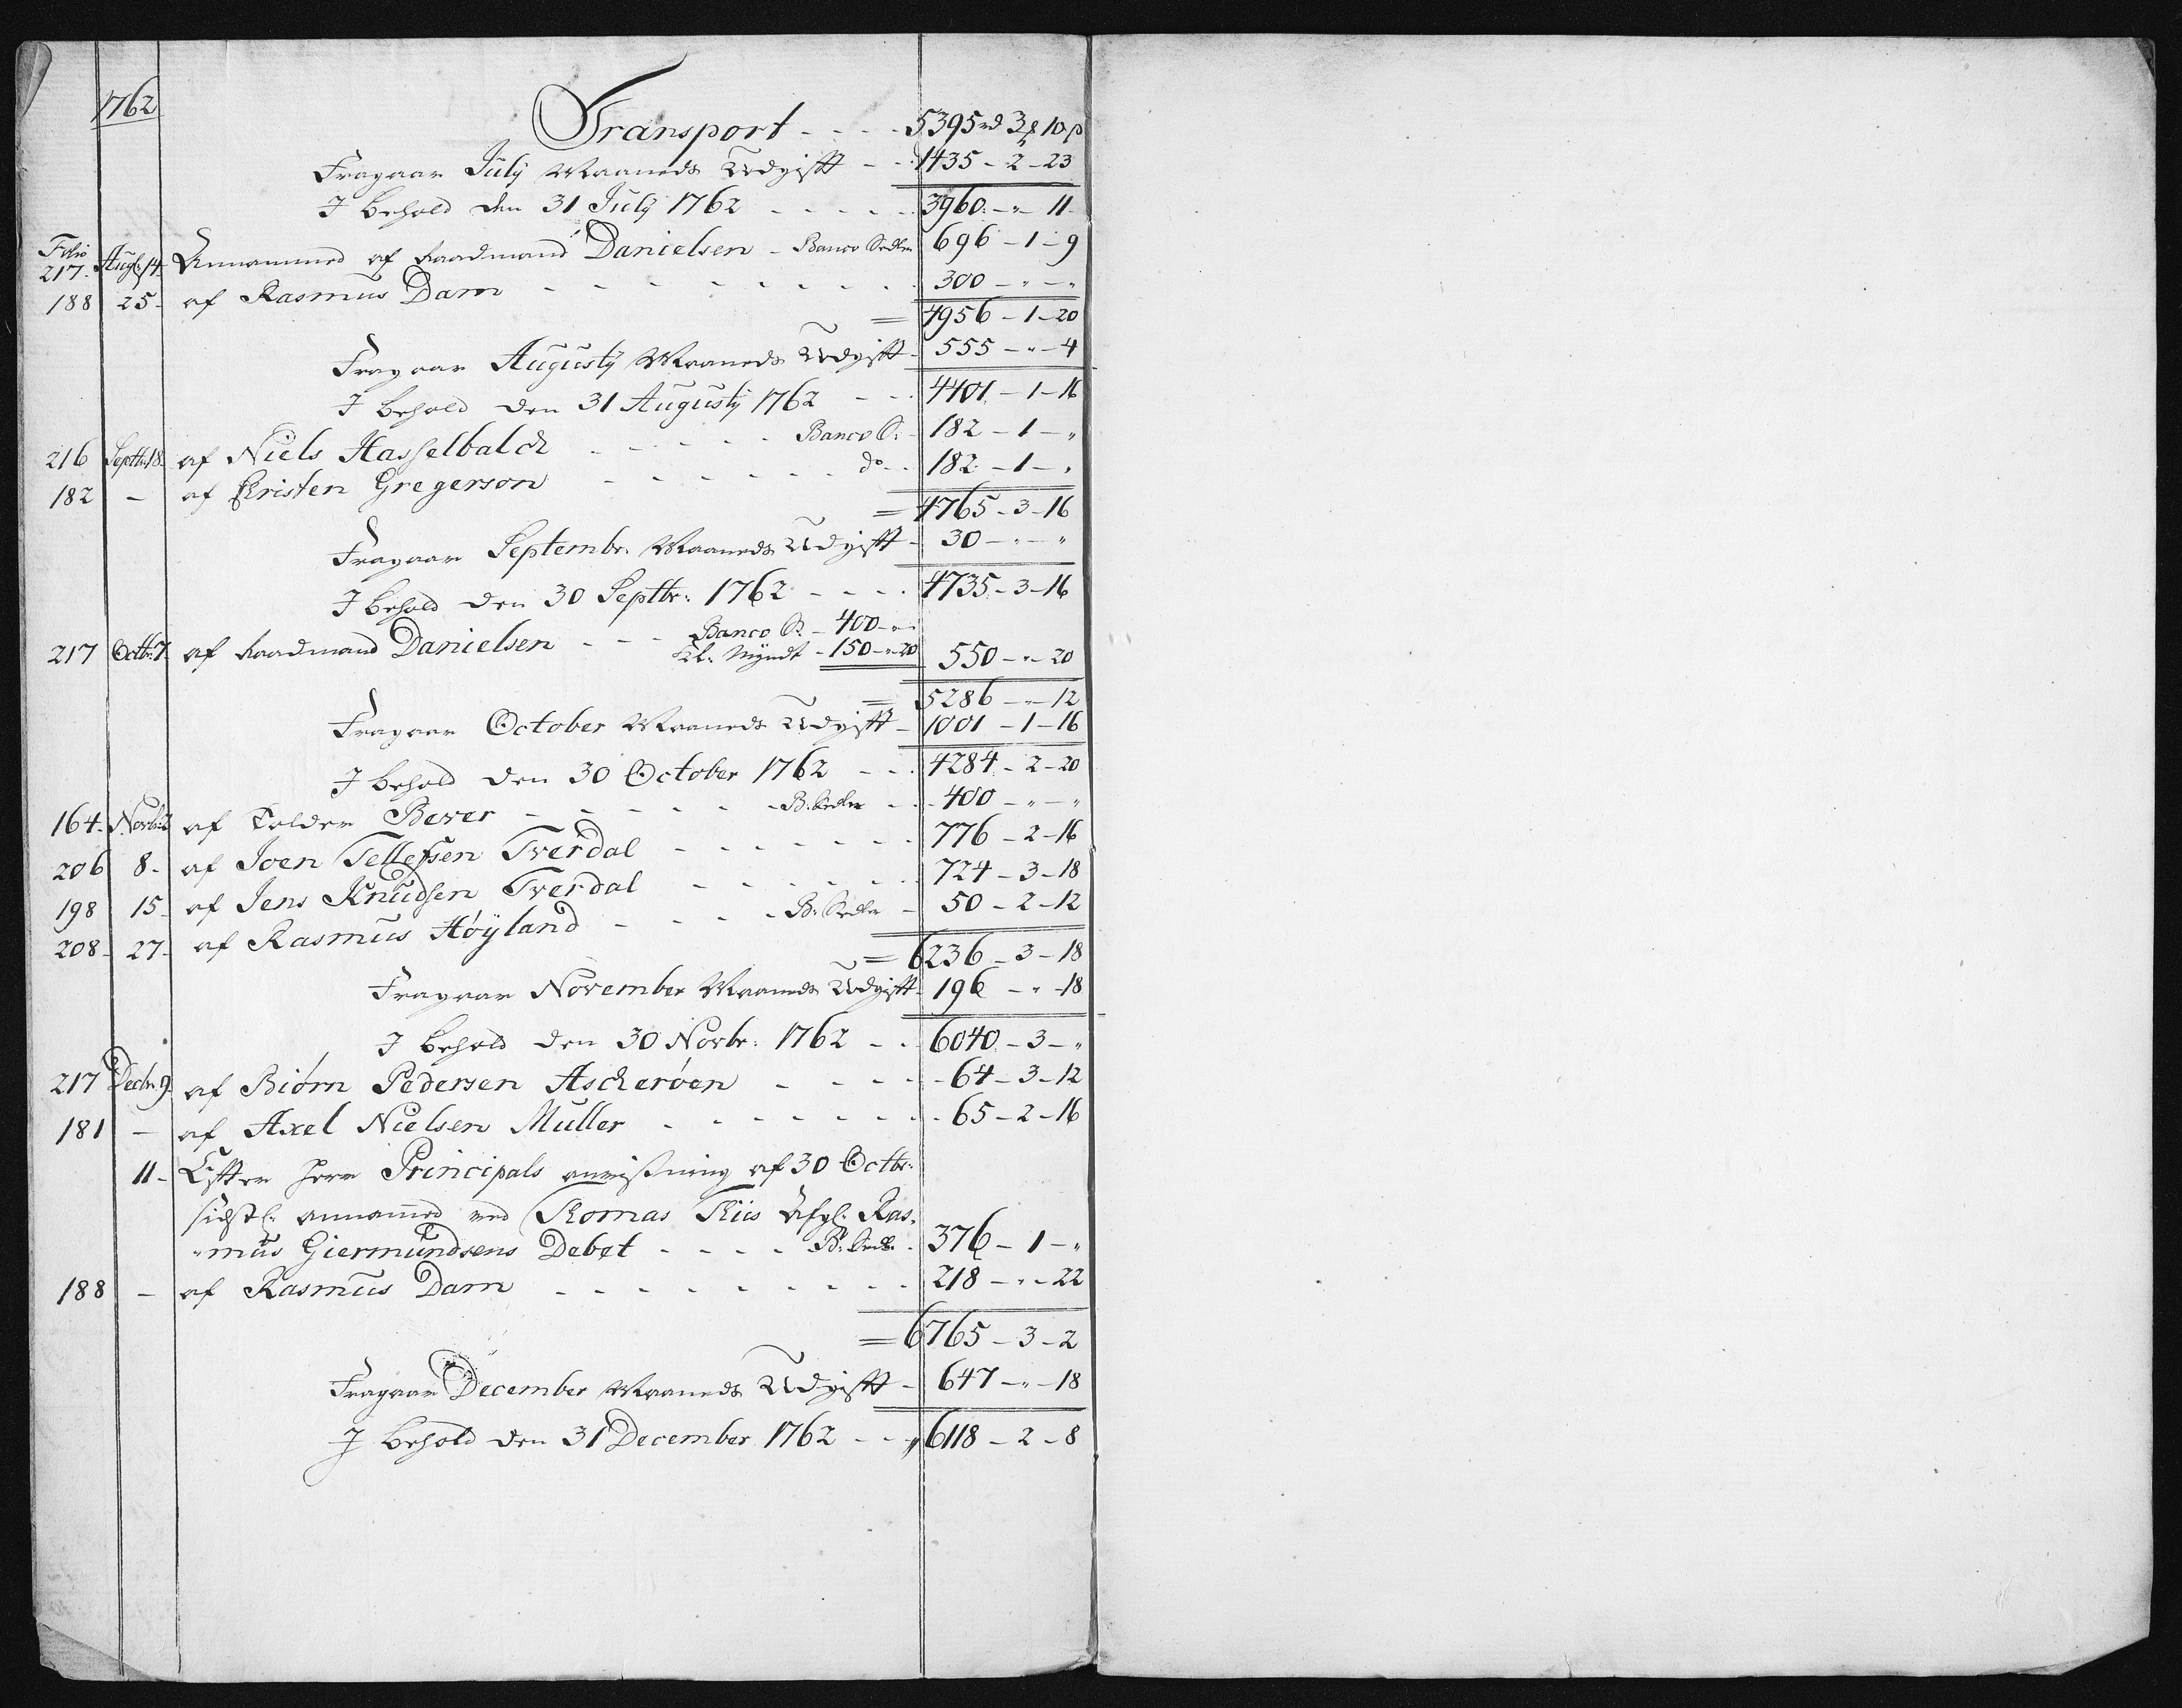 1762
Transport - - - - 5395 rd 3 ꝑ 10 ß
Fragaar July Maaneds Udgifft - - 1435 - 2 - 23
I behold den 31 July 1762 - - - - - 3960. - " - 11
Folio
217. Augt: 14. Annammed af Raadmand Danielsen - Banco Sedler 696 - 1 - 9
188 25 - af Rasmus Dam - - - - - - - - 300 - " - "
= 4956 - 1 - 20
Fragaar Augusty Maaneds Udgifft - 555 - " - 4
I behold den 31 Augusty 1762 - - - 4401. - 1 - 16
216 Septb: 18. af Niels Hasselbalch - - - - - Banco S. - 182 - 1 - "
182 - af Christen Gregerson - - - - - - do - - 182 - 1 - "
= 4765 - 3 - 16
Fragaar Septembr. Maaneds Udgifft - 30 - " - "
I behold den 30 Septbr: 1762 - - - - 4735 - 3 - 16
Banco S. - 400 - " -
217 Octb: 7. af Raadmand Danielsen - - - Kl: Myndt - 150 - " - 20 550 - " - 20
= 5286 - " - 12
Fragaar October Maaneds Udgifft - 1001 - 1 - 16
I behold den 30 October 1762 - - - 4284 - 2 - 20
164. Novb: 2 af Tolder Bever - - - - - - B. Sedler - - 400 - " - "
206 8 - af Joen Tellefsen Tverdal - - - - - - - 776 - 2 - 16
198 15 - af Jens Knudsen Tverdal - - - - - - 724 - 3 - 18
208 - 27 - af Rasmus Høyland - - - - B: Sedler - 50 - 2 - 12
= 6236 - 3 - 18
Fragaar November Maaneds Udgifft - 196 - " - 18
I behold den 30 Novbr: 1762 - - 6040. - 3 - "
217 Decbr. 9. af Biørn Pedersen Ascherøen - - - - - 64 - 3 - 12
181 - af Axel Nielsen Muller - - - - - - - 65 - 2 - 16
11 - Effter Herr Principals anvisning af 30 Octbr:
sidstl: annammed ved Thomas Thiis Afgl: Ras-
"mus Giermundsens Debet - - - - B: Sedl. - 376 - 1 - "
188 - af Rasmus Dam - - - - - - - - 218 - " - 22
= 6765 - 3 - 2
Fragaar December Maaneds Udgifft - 647 - " - 18
I behold den 31 December 1762 - - " 6118 - 2 - 8